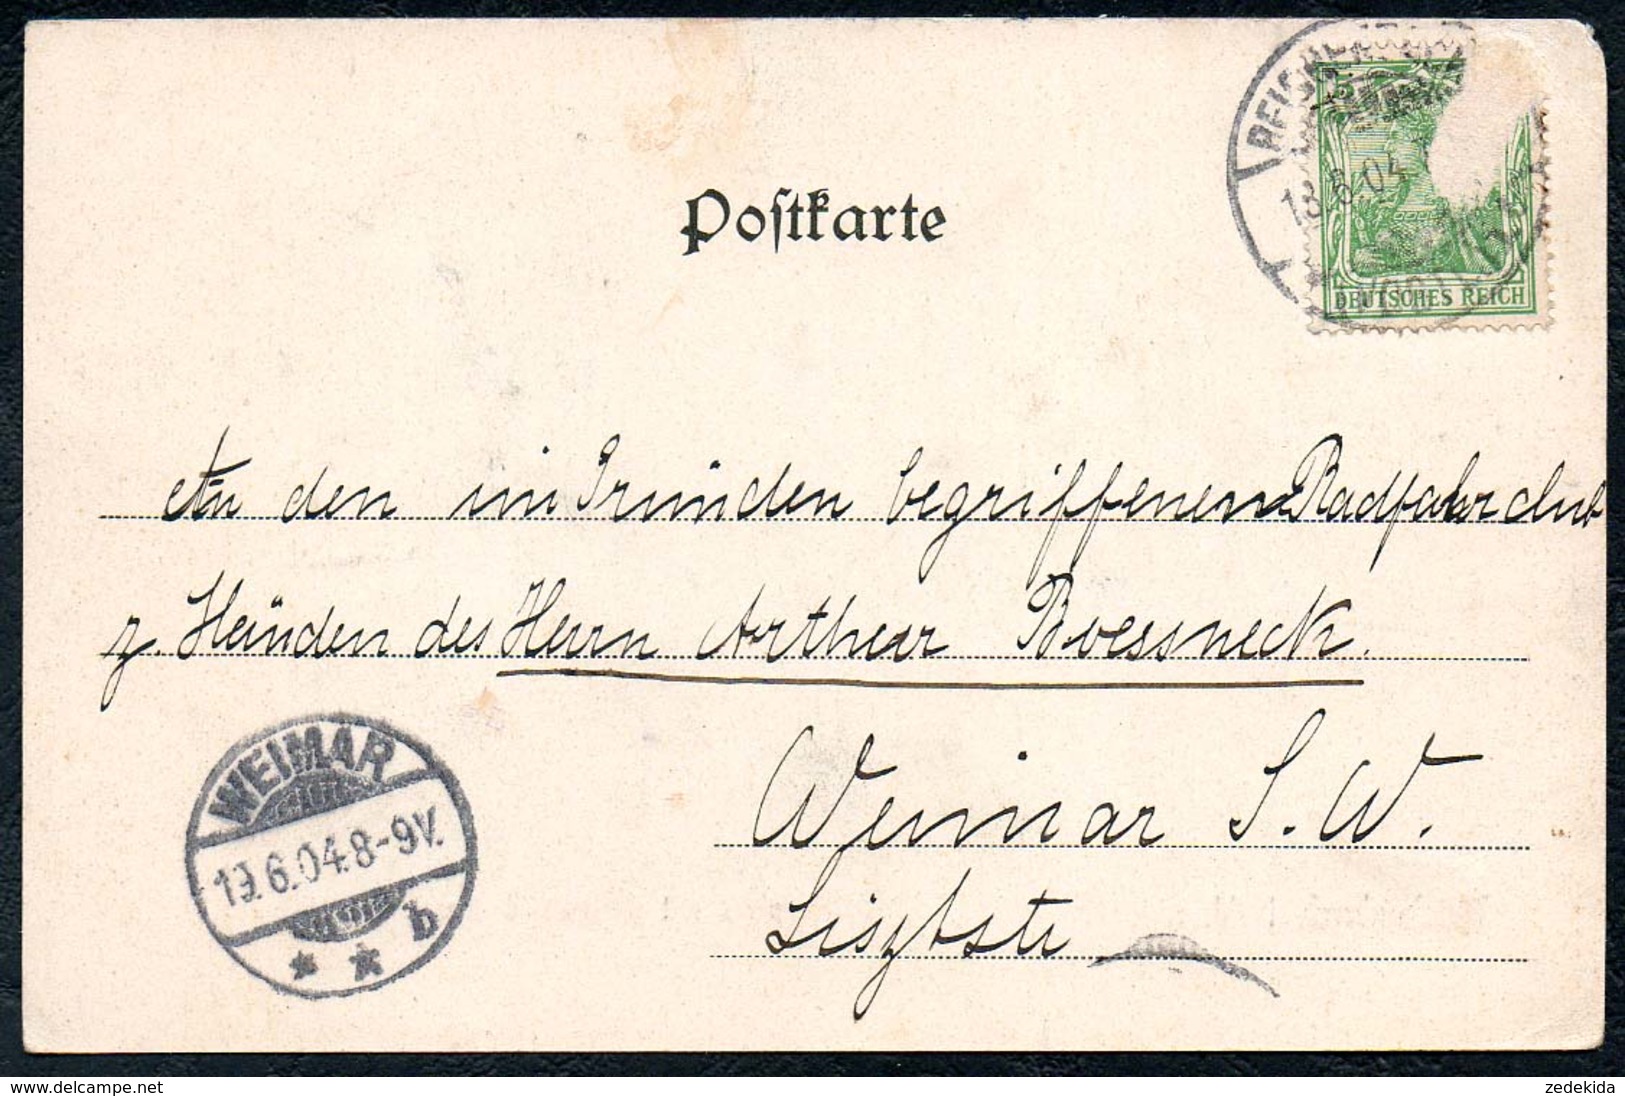 Postkarte
13.6.04
DEUTSCHES REICH
An den im Gründen begriffenen Radfahrclub
z. Händen des Herrn Arthur Boessneck.
Weimar S. W.
Lisztstr
WEIMAR
19.6.04.8-9V.
* * b
www.delcampe.net
zedekida